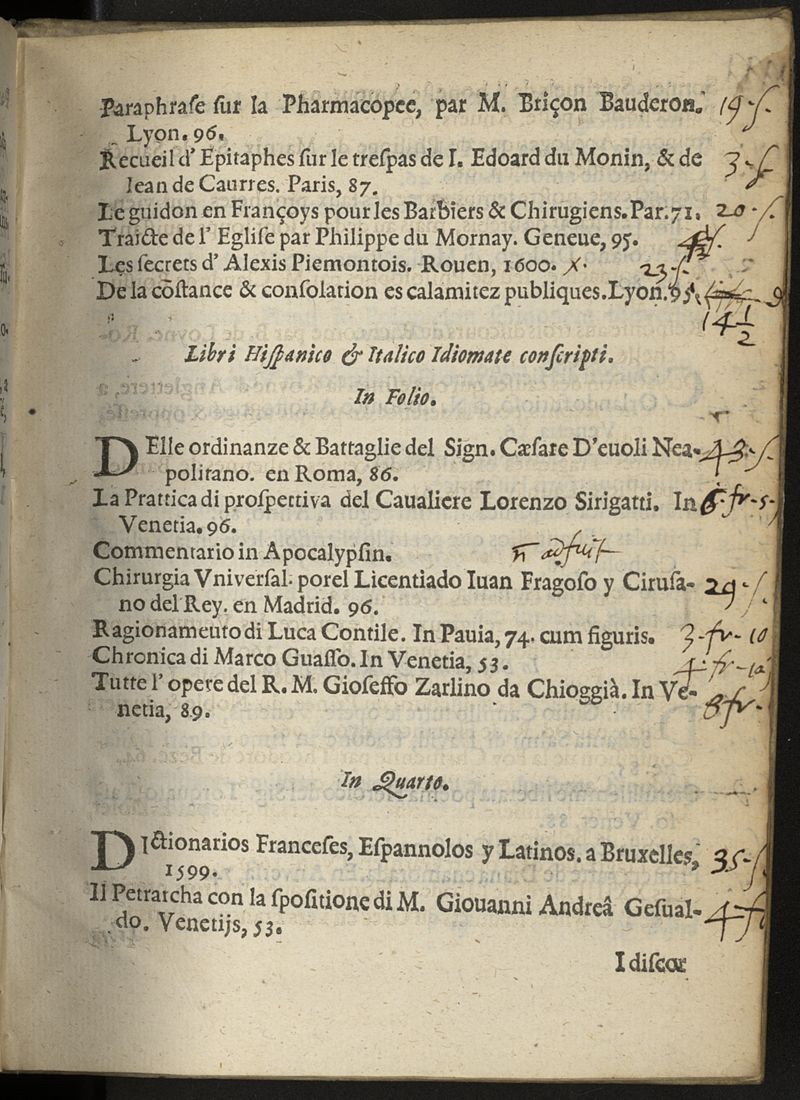 Paraphraſe ſur la Pharmacopee, par M. Briçon Bauderon. 19-ſ.
Lyon. 96.
Recueil d' Epitaphes ſur le treſpas de I. Edoard du Monin, & de 3-ſ
Iean de Caurres. Paris, 87.
Le guidon en Françoys pour les Barbiers & Chirugiens. Par. 71. 20-ſ.
Traicte de l' Egliſe par Philippe du Mornay. Geneue, 95.
Les ſecrets d' Alexis Piemontois. Rouen, 1600. X. 23-ſ.
De la cõſtance & conſolation es calamitez publiques. Lyon. 95.
14 1/2
Libri Hiſpanico & Italico Idiomate conſcripti.
In Folio.
DElle ordinanze & Battaglie del Sign. Cæſare D'euoli Nea- 43-ſ.
politano. en Roma, 86.
La Prattica di proſpettiva del Caualiere Lorenzo Sirigatti. In 6-fr-5-
Venetia. 96.
Commentario in Apocalypſin. n adfuit
Chirurgia Vniverſal. porel Licentiado Iuan Fragoſo y Ciruſa- 29-ſ
no del Rey. en Madrid. 96.
Ragionameuto di Luca Contile. In Pauia, 74. cum figuris. 3-fr-10
Chronica di Marco Guaſſo. In Venetia, 53. 4-fr-10
Tutte l' opere del R. M. Gioſeffo Zarlino da Chioggià. In Ve-
netia, 89. 8fr-
In Quarto.
DIctionarios Franceſes, Eſpannolos y Latinos. a Bruxelles, 35-ſ
1599.
Il Petrarcha con la ſpoſitione di M. Giouanni Andreâ Geſual- 4-fr
do. Venetijs, 53.
I diſcor